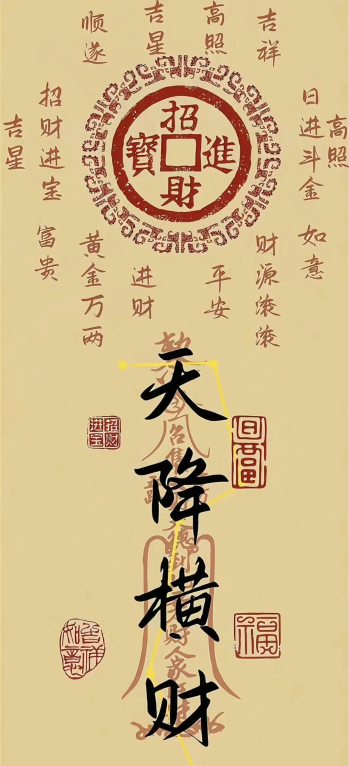 吉星
高照
吉祥
顺遂
招财进宝
日进斗金
高照
吉星
招財進寶
富贵
黄金万两
进财
平安
财源滚滚
如意
天降横财
招财进宝
日富
福
吉祥如意